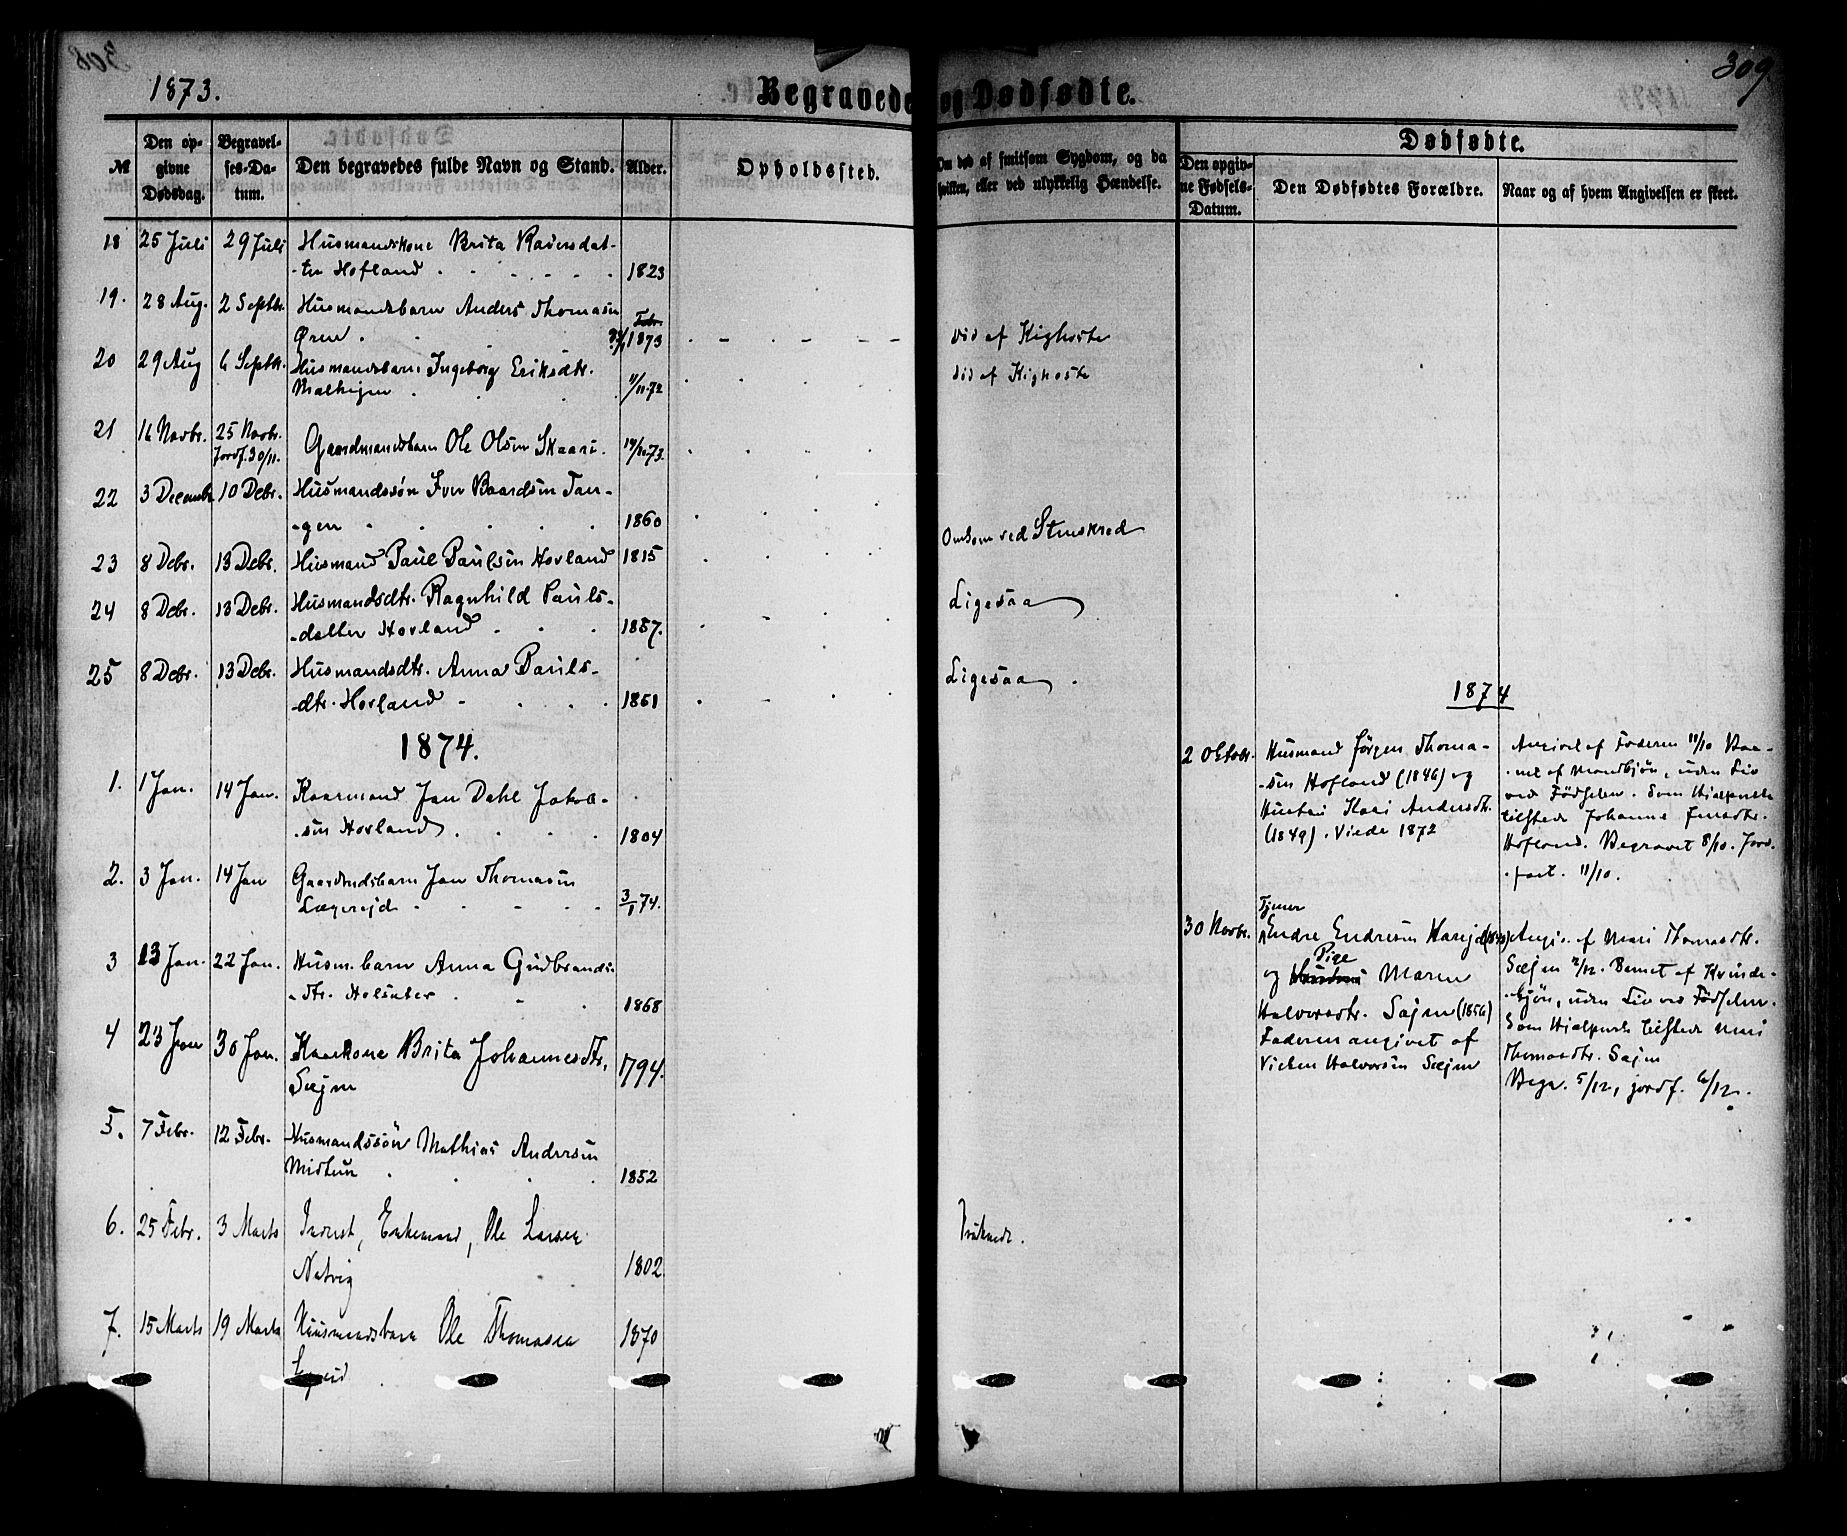 1873.
Begravede og Dødfødte.
309
№
Den op-
givne
Dødsdag.
Begravel-
ses-Da-
tum.
Den begravedes fulde Navn og Stand.
Alder.
Opholdssted.
Om død af smitsom Sygdom, og da
hvilken, eller ved ulykkelig Hændelse.
Dødfødte.
Den opgiv-
ne Fødsels-
Datum.
Den Dødfødtes Forældre.
Naar og af hvem Angivelsen er skeet.
18 25 Juli 29 Juli Husmandskone Brita
-ter Hofland 1823
19. 28 Aug. 2 Septbr. Husmandsbarn Anders Thomasen
Øren 1873 død af Kighoste
20 29 Aug 6 Septbr. Husmandsbarn Ingeborg Eriksdtr. død af Kighoste
11/11.72
21 16 Novbr. 25 Novbr. Gaardmandsbarn Ole Olsen Skaari. 73.
Jordf. 30/11.
22 3 Decembr 10 Debr. Husmandssøn Iver Baardsen Tan-
-gen 1860 Omkom ved Stenskred
23 8 Debr. 13 Debr. Husmand Paul Paulsen Hovland 1815
24 8 Debr. 13 Debr. Husmandsdtr. Ragnhild Pauls- Ligesaa
-datter Hovland 1857.
25 8 Debr. 13 Debr. Husmandsdtr. Anna Pauls- Ligesaa
-dtr. Hovland 1861
1874.
1. 1 Jan. 14 Jan. Kaarmand Jan Dahl Jakob-
-sen Hovland 1804
2. 3 Jan. 14 Jan Gaardmdsbarn Jan Thomasen
Lægreid 3/1 74.
3 13 Jan. 22 Jan. Husm.barn Anna Gudbrands-
-dtr. Holsæter 1868
4 23 Jan 30 Jan. Kaarkone Brita Johannesdtr.
Sæjm 1794.
5. 7 Febr. 12 Febr. Husmandssøn Mathias Andersen
Midtun 1852
6. 25 Febr. 3 Marts Inderst, Enkemand, Ole Larsen Druknede.
Natvig 1802
7. 15 Marts 19 Marts Huusmandsbarn Ole Thomasen 1870
1874
2 Oktobr. Husmand Jørgen Thoma-
-sen Hofland (1846) og
Hustru Kari Andersdtr.
(1849). Viede 1872
Angivet af Faderen 11/10 Bar-
-net af Mandkjøn, uden Liv
ved Fødselen. Som Hjælpersk
tilstede Johanne Jensdtr.
Hofland. Begravet 8/10. Jord-
-fæst. 11/10.
30 Novbr. Tjener
Endre Endresen
og Pige Maren
Halvorsdtr. Sæjm (1856)
Faderen angivet af
Halvorsen Sæjm
Angiv. af Mari Thomasdtr.
Sæjm 2/12. Barnet af Kvinde-
-kjøn, uden Liv ved Fødselen.
Som Hjælpersk tilstede Mari
Thomasdtr. Sæjm
Begr. 5/12, jordf. 6/12.